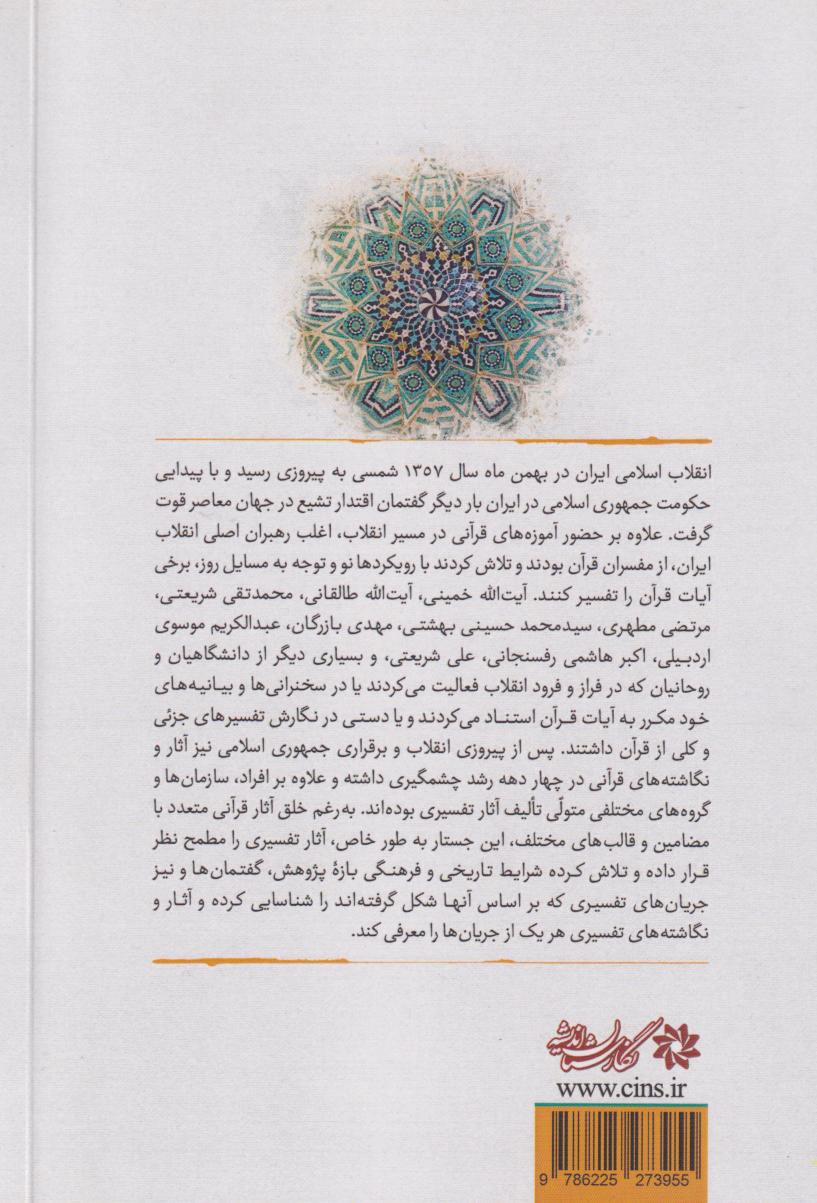 انقلاب اسلامی ایران در بهمن ماه سال ۱۳۵۷ شمسی به پیروزی رسید و با پیدایی
حکومت جمهوری اسلامی در ایران بار دیگر گفتمان اقتدار تشیع در جهان معاصر قوت
گرفت. علاوه بر حضور آموزه‌های قرآنی در مسیر انقلاب، اغلب رهبران اصلی انقلاب
ایران، از مفسران قرآن بودند و تلاش کردند با رویکردها نو و توجه به مسایل روز، برخی
آیات قرآن را تفسیر کنند. آیت‌الله خمینی، آیت‌الله طالقانی، محمدتقی شریعتی،
مرتضی مطهری، سیدمحمد حسینی بهشتی، مهدی بازرگان، عبدالکریم موسوی
اردبیلی، اکبر هاشمی رفسنجانی، علی شریعتی، و بسیاری دیگر از دانشگاهیان و
روحانیان که در فراز و فرود انقلاب فعالیت می‌کردند یا در سخنرانی‌ها و بیانیه‌های
خود مکرر به آیات قرآن استناد می‌کردند و یا دستی در نگارش تفسیرهای جزئی
و کلی از قرآن داشتند. پس از پیروزی انقلاب و برقراری جمهوری اسلامی نیز آثار و
نگاشته‌های قرآنی در چهار دهه رشد چشمگیری داشته و علاوه بر افراد، سازمان‌ها و
گروه‌های مختلفی متولّی تألیف آثار تفسیری بوده‌اند. به‌رغم خلق آثار قرآنی متعدد با
مضامین و قالب‌های مختلف، این جستار به طور خاص، آثار تفسیری را مطمح نظر
قرار داده و تلاش کرده شرایط تاریخی و فرهنگی بازهٔ پژوهش، گفتمان‌ها و نیز
جریان‌های تفسیری که بر اساس آنها شکل گرفته‌اند را شناسایی کرده و آثار و
نگاشته‌های تفسیری هر یک از جریان‌ها را معرفی کند.
نگارستان اندیشه
www.cins.ir
9 786225 273955